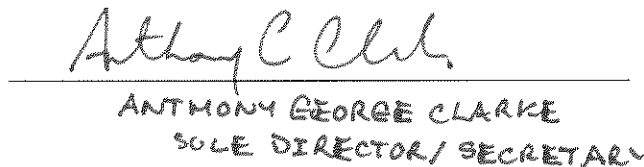 Anthony C Clarke
ANTHONY GEORGE CLARKE
SOLE DIRECTOR/SECRETARY